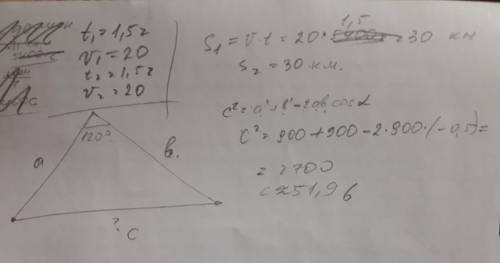 t₁=1,5г
v₁=20
t₂=1,5г
v₂=20
S₁=v·t=20·1,5=30 км
S₂=30 км.
c²=a²+b²-2ab cos α
c²=900+900-2·900·(-0,5)=
=2700
c≈51,96
120°
a
b.
?
c